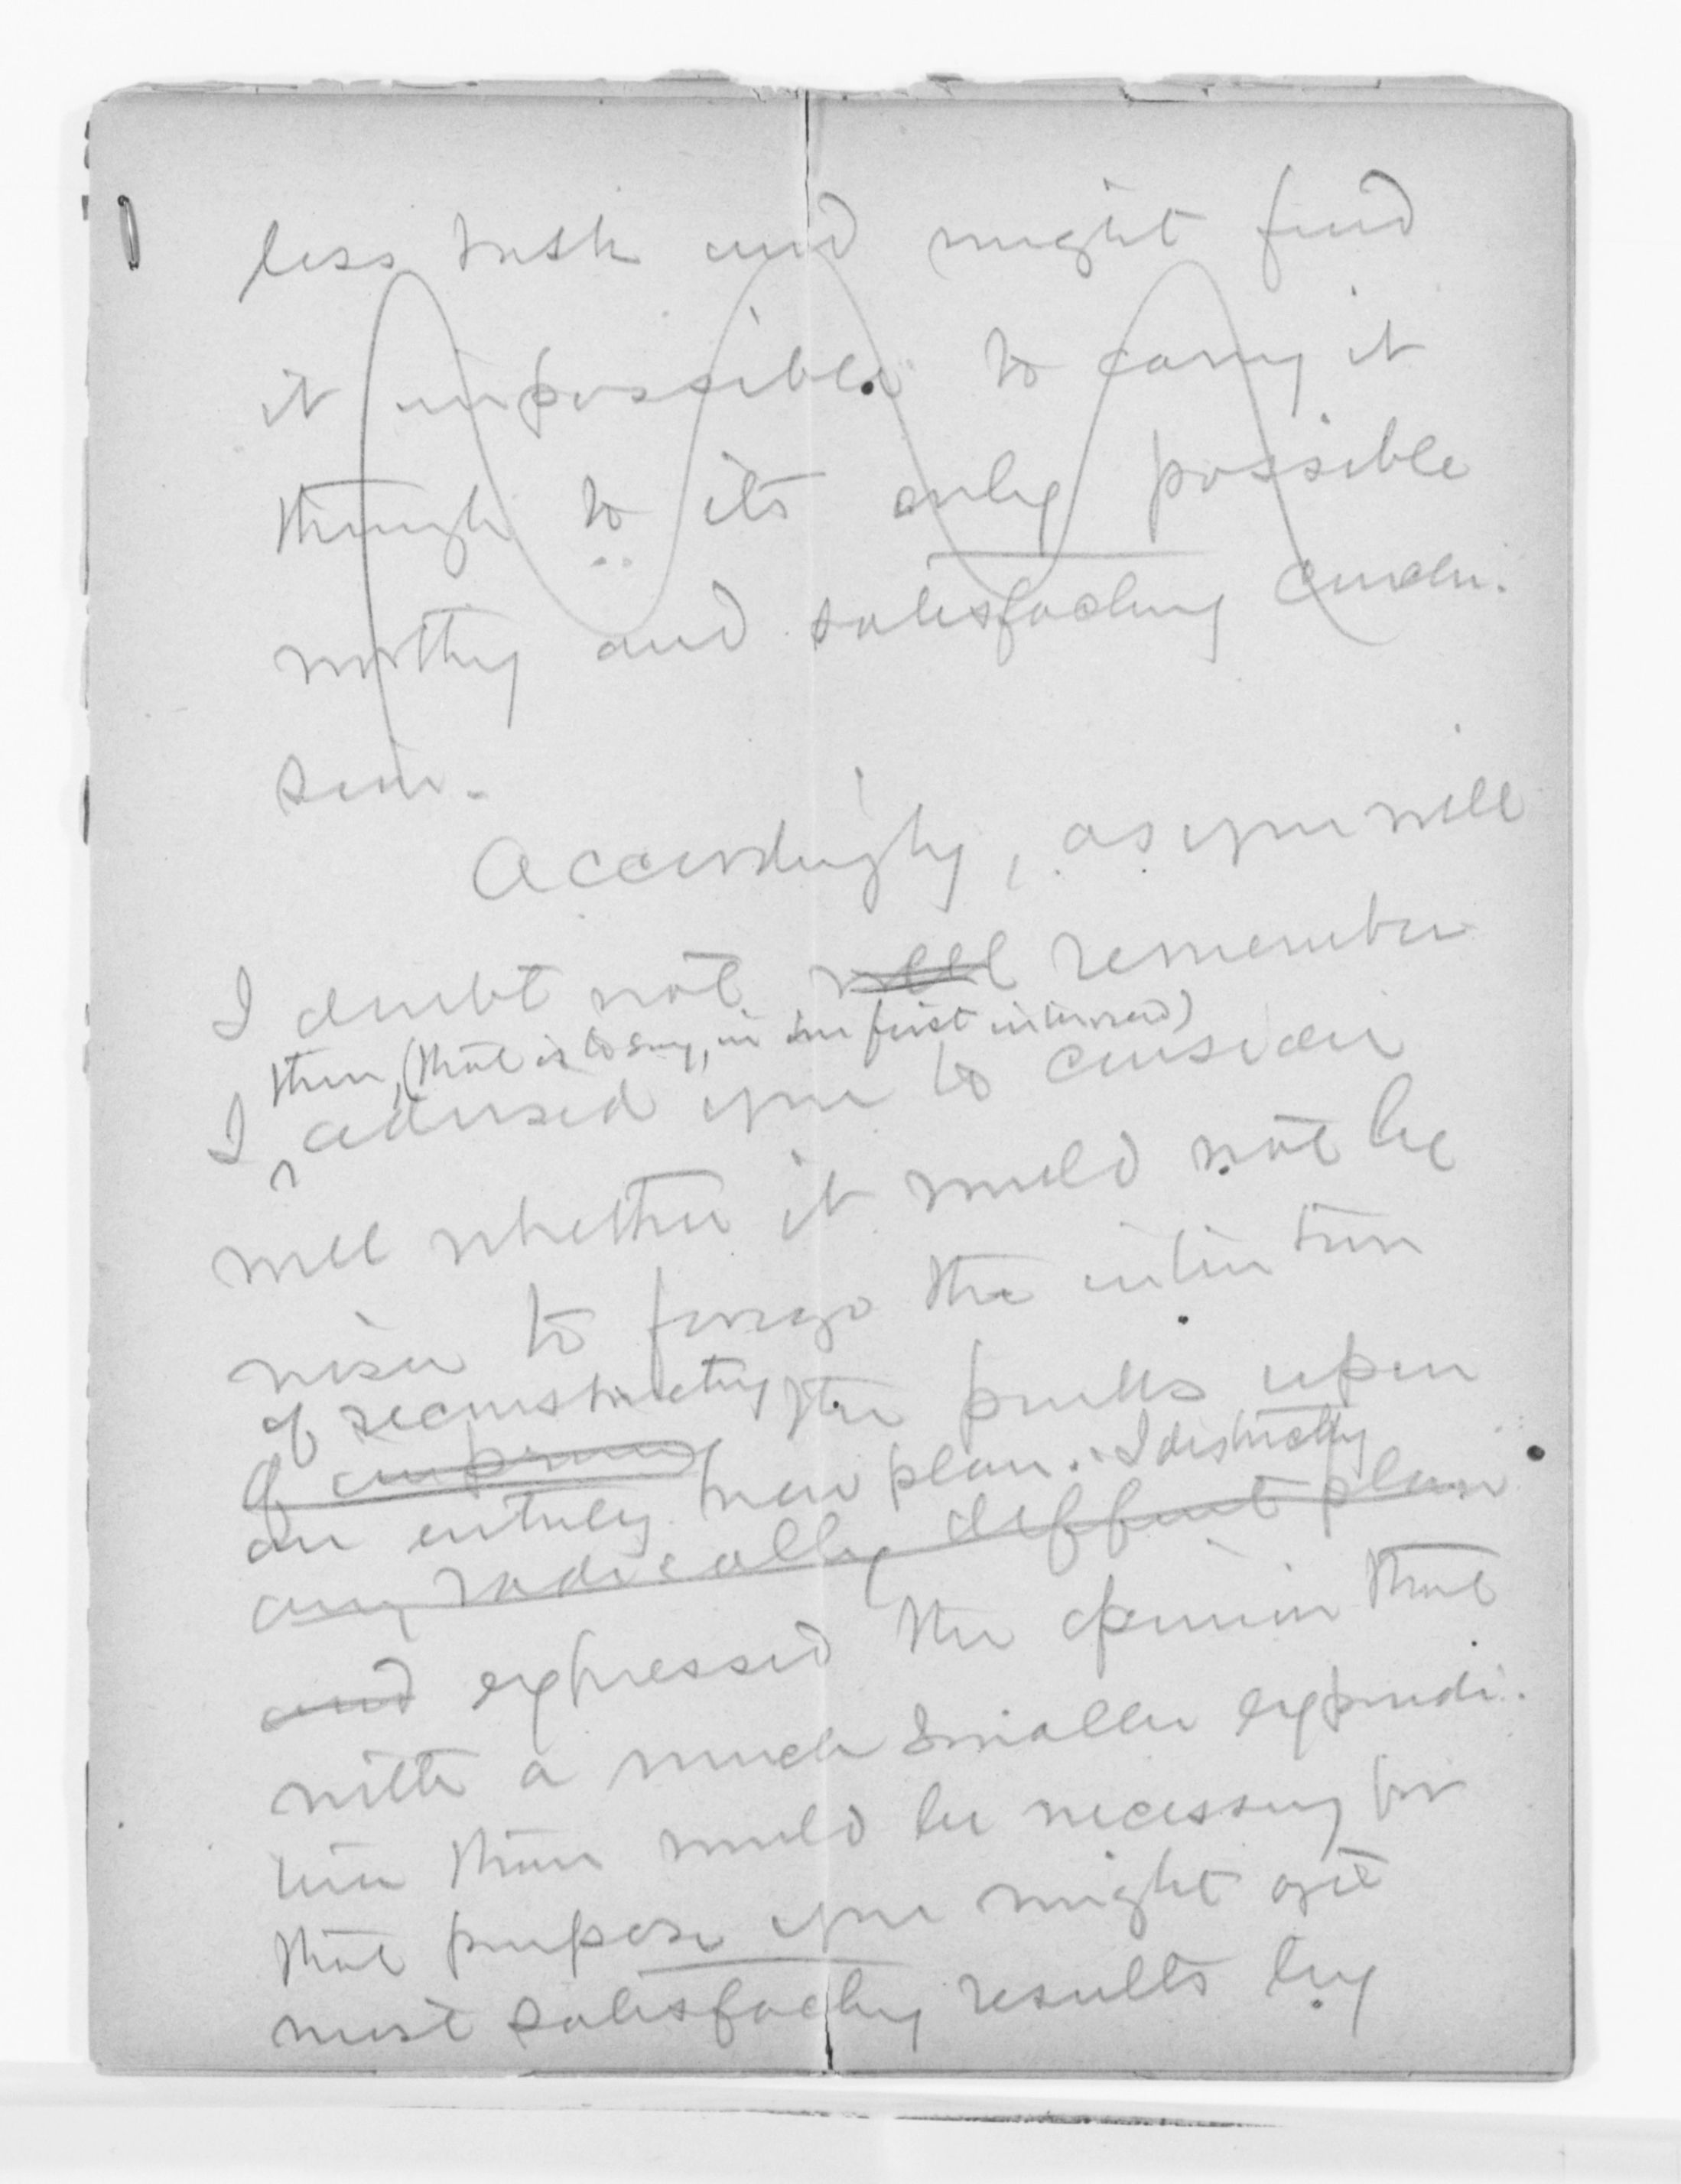 less task and might find
it impossible to carry it
through to its only possible
worthy and satisfactory conclu-
sion.
Accordingly, as you will
I doubt not will remember
then, (that is to say, in our first interview)
I advised you to consider
well whether it would not be
wiser to forego the intention
of reconstructing the public upon
of improving
an entirely new plan. I distinctly
any radically different plan
and expressed the opinion that
with a much smaller expendi-
ture than would be necessary for
that purpose you might get
most satisfactory results by